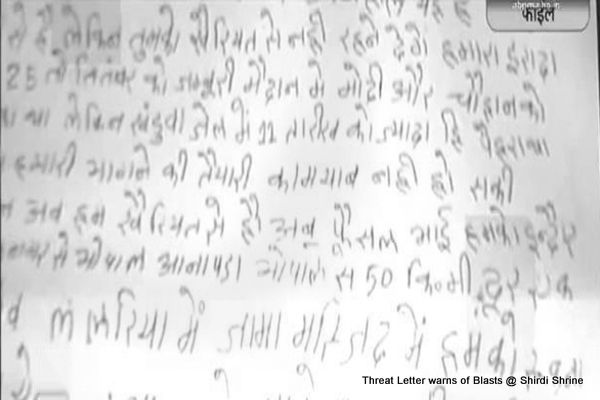 abpnews.in
फाईल
से है लेकिन तुमको खैरियत से नही रहने देगे हमारा इरादा
25 तो सितंबर को जम्बूरी मैदान मे मोदी और चौहान को
था लेकिन खंडुवा जेल में 11 तारीख को ज्यादा हि पैहरा था
हमारी भागने की तैयारी कामयाब नही हो सकी
अब हम खैरियत से है अबु फैसल भाई हमको इन्दौर
से भोपाल आना पडा भोपाल से 50 कि.मी. दूर एक
में जामा मस्जिद में हमको
Threat Letter warns of Blasts @ Shirdi Shrine